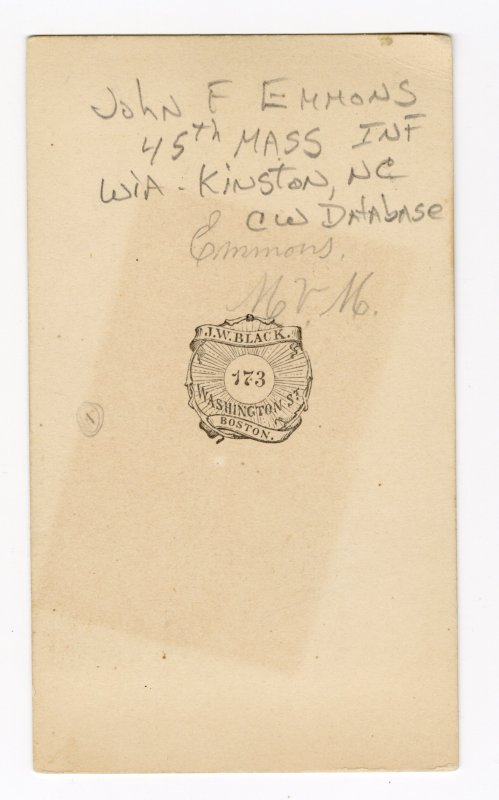 John F Emmons
45th Mass Inf
WIA - Kinston, NC
CW Database
Emmons.
M.V.M.
J.W. BLACK.
173
WASHINGTON ST.
BOSTON.
1